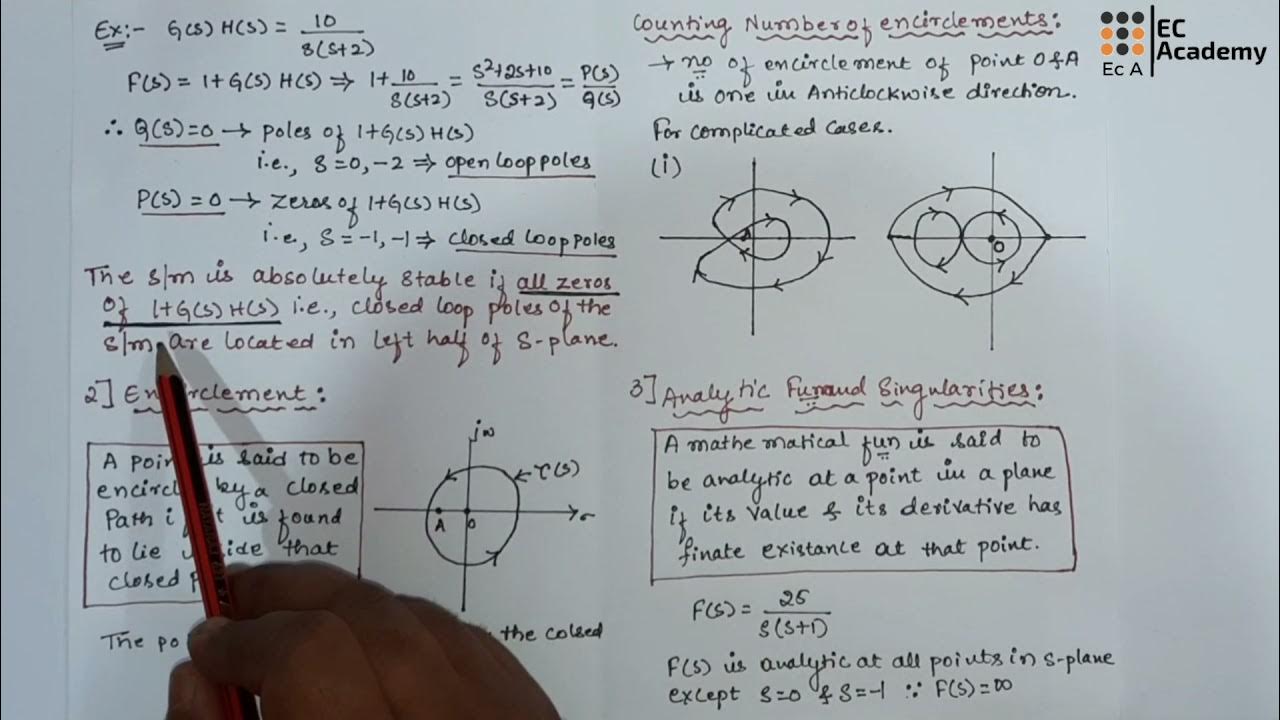 Ex:- G(s) H(s) = 10 / s(s+2)
F(s) = 1+G(s) H(s) ⇒ 1+ 10 / s(s+2) = s²+2s+10 / s(s+2) = P(s) / Q(s)
∴ Q(s)=0 → poles of 1+G(s) H(s)
i.e., s=0,-2 ⇒ open loop poles
P(s) = 0 → zeros of 1+G(s) H(s)
i.e., s = -1, -1 ⇒ closed loop poles
The s/m is absolutely stable if all zeros
of 1+G(s) H(s) i.e., closed loop poles of the
s/m are located in left half of s-plane.
2] Encirclement:
A point is said to be
encircled by a closed
Path if it is found
to lie inside that
closed
jω
τ(s)
A
o
σ
The po
the colsed
Counting Number of encirclements:
→ no of encirclement of point O & A
is one in Anticlockwise direction.
For complicated cases.
(i)
A
O
3] Analytic Fun and Singularities:
A mathematical fun is said to
be analytic at a point in a plane
if its value & its derivative has
finate existance at that point.
F(s) = 25 / s(s+1)
F(s) is analytic at all points in s-plane
except s=0 & s=-1 ∵ F(s)=∞
EC
Academy
Ec A